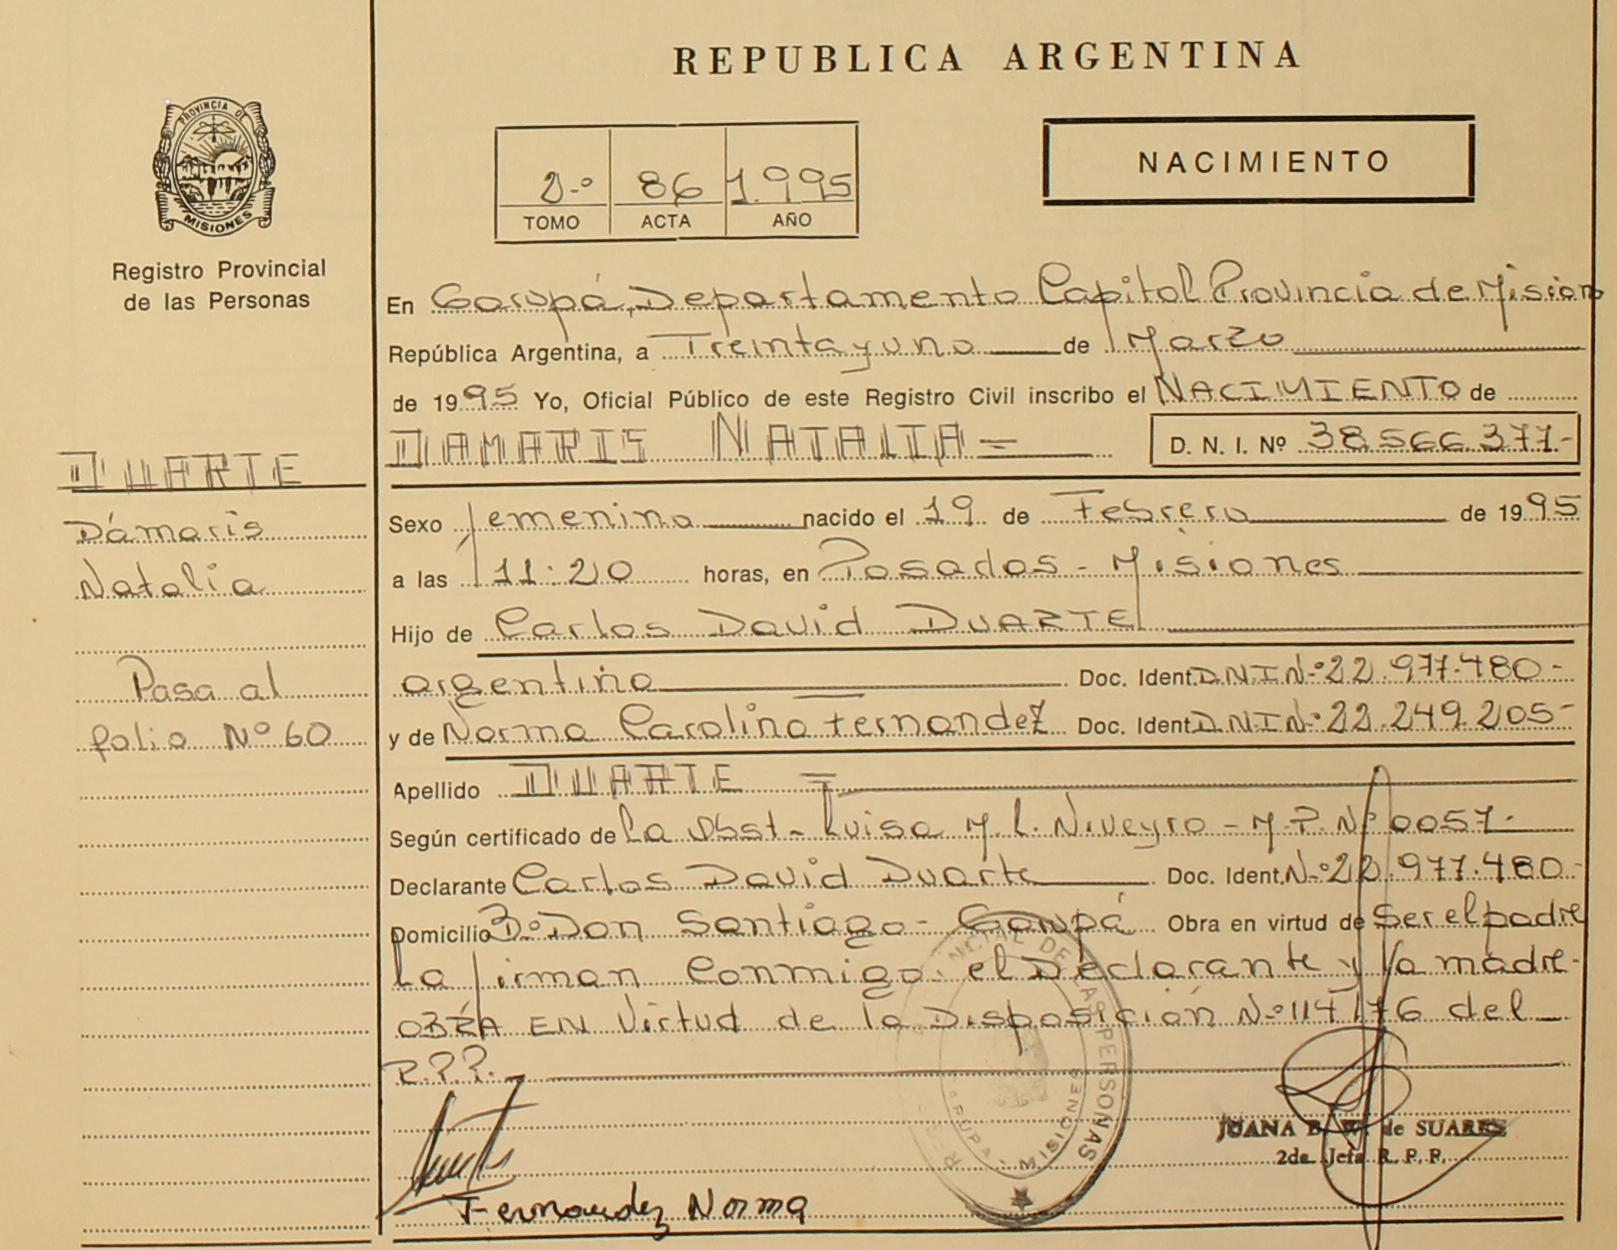 REPUBLICA ARGENTINA
PROVINCIA DE
MISIONES
Registro Provincial
de las Personas
NACIMIENTO
2º 86 1.995
TOMO ACTA AÑO
En Garupá, Departamento Capital Provincia de Mision
República Argentina, a Treinta y uno de Marzo
de 1995 Yo, Oficial Público de este Registro Civil inscribo el NACIMIENTO de
DAMARIS NATALIA= D. N. I. Nº 38.566.377-
DUARTE
Dámaris
Natalia
Pasa al
folio Nº 60
Sexo femenino nacido el 19 de Febrero de 1995
a las 11:20 horas, en Posadas - Misiones
Hijo de Carlos David DUARTE
argentino Doc. Ident. DNI Nº 22.977.480-
y de Norma Carolina Fernandez Doc. Ident. DNI Nº 22.249.205-
Apellido DUARTE =
Según certificado de la Obst- Luisa M. L. Niveyro - M.P. Nº 0057-
Declarante Carlos David Duarte Doc. Ident. Nº 22.977.480-
Domicilio Bº Don Santiago - Garupá Obra en virtud de Ser el padre
La firman Conmigo: el Declarante y la madre-
OBRA EN Virtud de la Disposición Nº 114/76 del
R.P.P.
Fernandez Norma
JUANA B. W. de SUAREZ
2da. Jefa R. P. P.
DE LAS PERSONAS
GARUPA - MISIONES